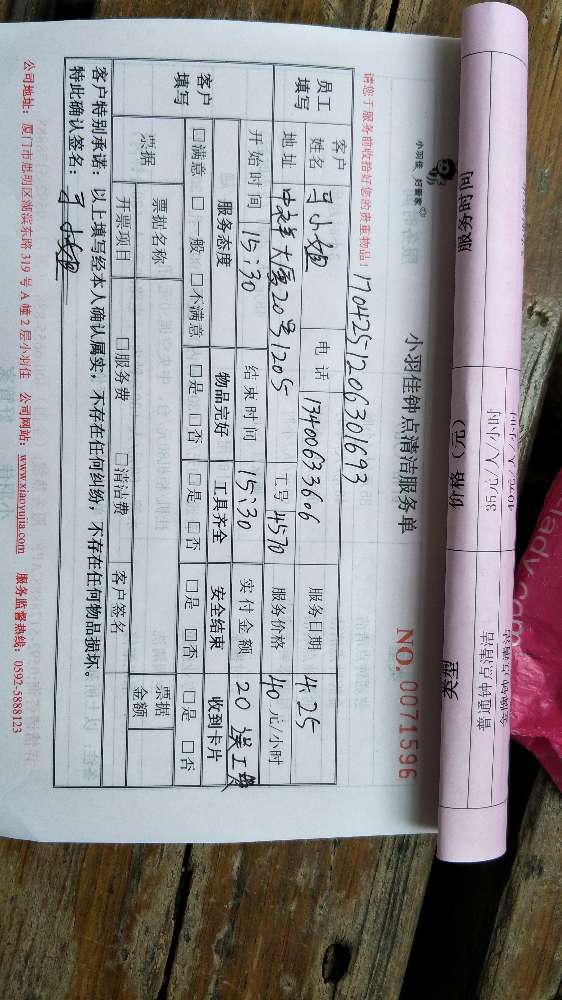 小羽佳 好管家
小羽佳钟点清洁服务单
NO. 0071596
请您于服务前收拾好您的贵重物品!
1704251206301693
员工填写
客户姓名 马小姐 电话 13400633606 服务日期 4.25
地址 中祥大厦20号1205 工号 4570 服务价格 40元/小时
开始时间 15:30 结束时间 15:30 实付金额 20 误工费
客户填写
服务态度 物品完好 工具齐全 安全结束 收到卡片
□满意 □一般 □不满意 □是 □否 □是 □否 □是 □否 □是 □否
票据 票据名称 票据金额
开票项目 □服务费 □清洁费 客户签名
客户特别承诺:以上填写经本人确认属实,不存在任何纠纷,不存在任何物品损坏。
特此确认签名:马小姐
公司地址:厦门市思明区湖滨东路319号A幢2层小羽佳 公司网站:www.xiaoyujia.com 服务监督热线:0592-5888123
服务时间 价格(元) 类型
35元/人/小时 普通钟点清洁
lady.com